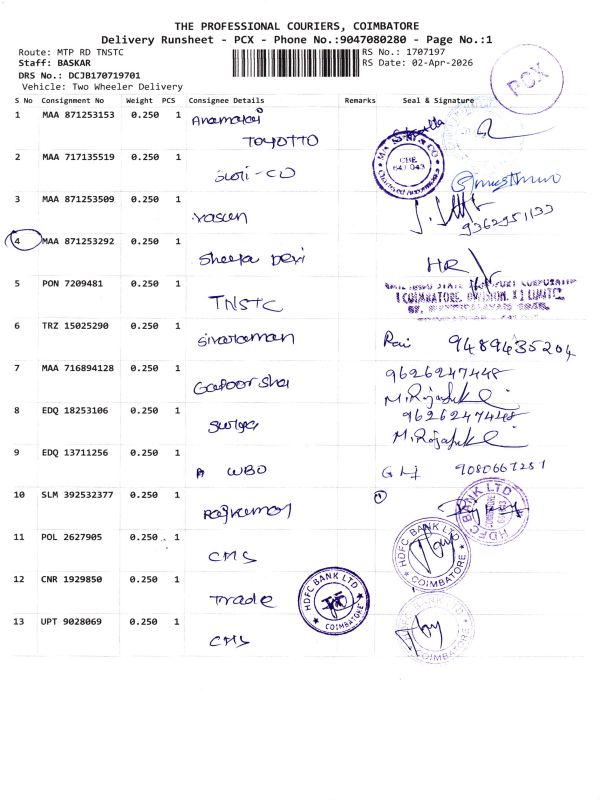 THE PROFESSIONAL COURIERS, COIMBATORE
Delivery Runsheet - PCX - Phone No.:9047080280 - Page No.:1
Route: MTP RD TNSTC RS No.: 1707197
Staff: BASKAR RS Date: 02-Apr-2026
DRS No.: DCJB170719701
Vehicle: Two Wheeler Delivery
PCX
S No Consignment No Weight PCS Consignee Details Remarks Seal & Signature
1 MAA 871253153 0.250 1
TOYOTTO
2 MAA 717135519 0.250 1
CBE
641 043
3 MAA 871253509 0.250 1
9362951133
4 MAA 871253292 0.250 1 Sheeja Devi
HR
5 PON 7209481 0.250 1 TNSTC
6 TRZ 15025290 0.250 1 Sivaraman 9489435204
7 MAA 716894128 0.250 1 9626247448
8 EDQ 18253106 0.250 1 9626247448
9 EDQ 13711256 0.250 1 WBO 9080667251
10 SLM 392532377 0.250 1 Rajkumar
HDFC BANK LTD
11 POL 2627905 0.250 1 CMS
HDFC BANK LTD COIMBATORE
12 CNR 1929850 0.250 1 Trade
HDFC BANK LTD COIMBATORE
13 UPT 9028069 0.250 1 CMS
HDFC BANK LTD COIMBATORE